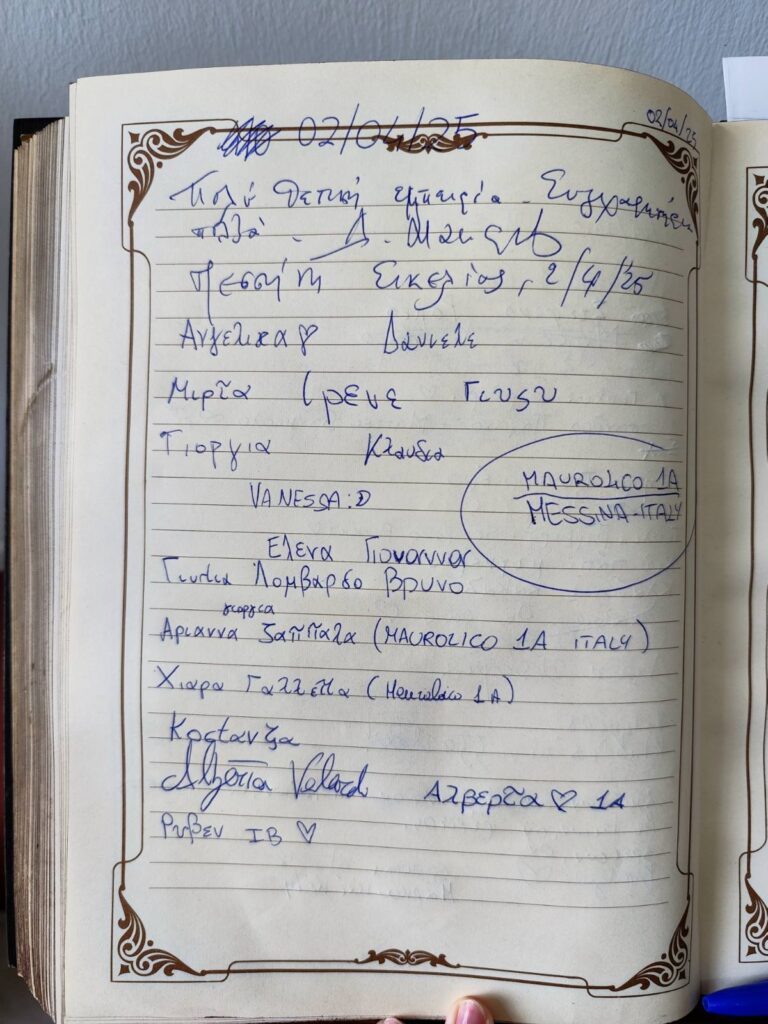 02/04/25
02/04/25
Πολύ θετική εμπειρία. Συγχαρητήρια
πολλά.
Μεσσήνη Σικελίας, 2/4/25
Ανγελικα♡ Δανιελε
Μιρτα Ιρενε Γιυςυ
Γιοργια Κλαυδια
VANESSA:D
MAUROLICO 1A
MESSINA-ITALY
Ελενα Γιοναννα
Γιυλια Λομβαρδο Βρυνο
γιοργια
Αριαννα Ζαππαλα (MAUROLICO 1A ITALY)
Χιαρα Γαλλεττα (Maurolico 1A)
Κοσtανζα
Αλβερτα♡ 1A
Ρυβεν IB ♡